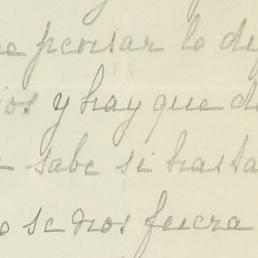 pensar lo de
y hay que d
sabe si hasta
o se nos fuera